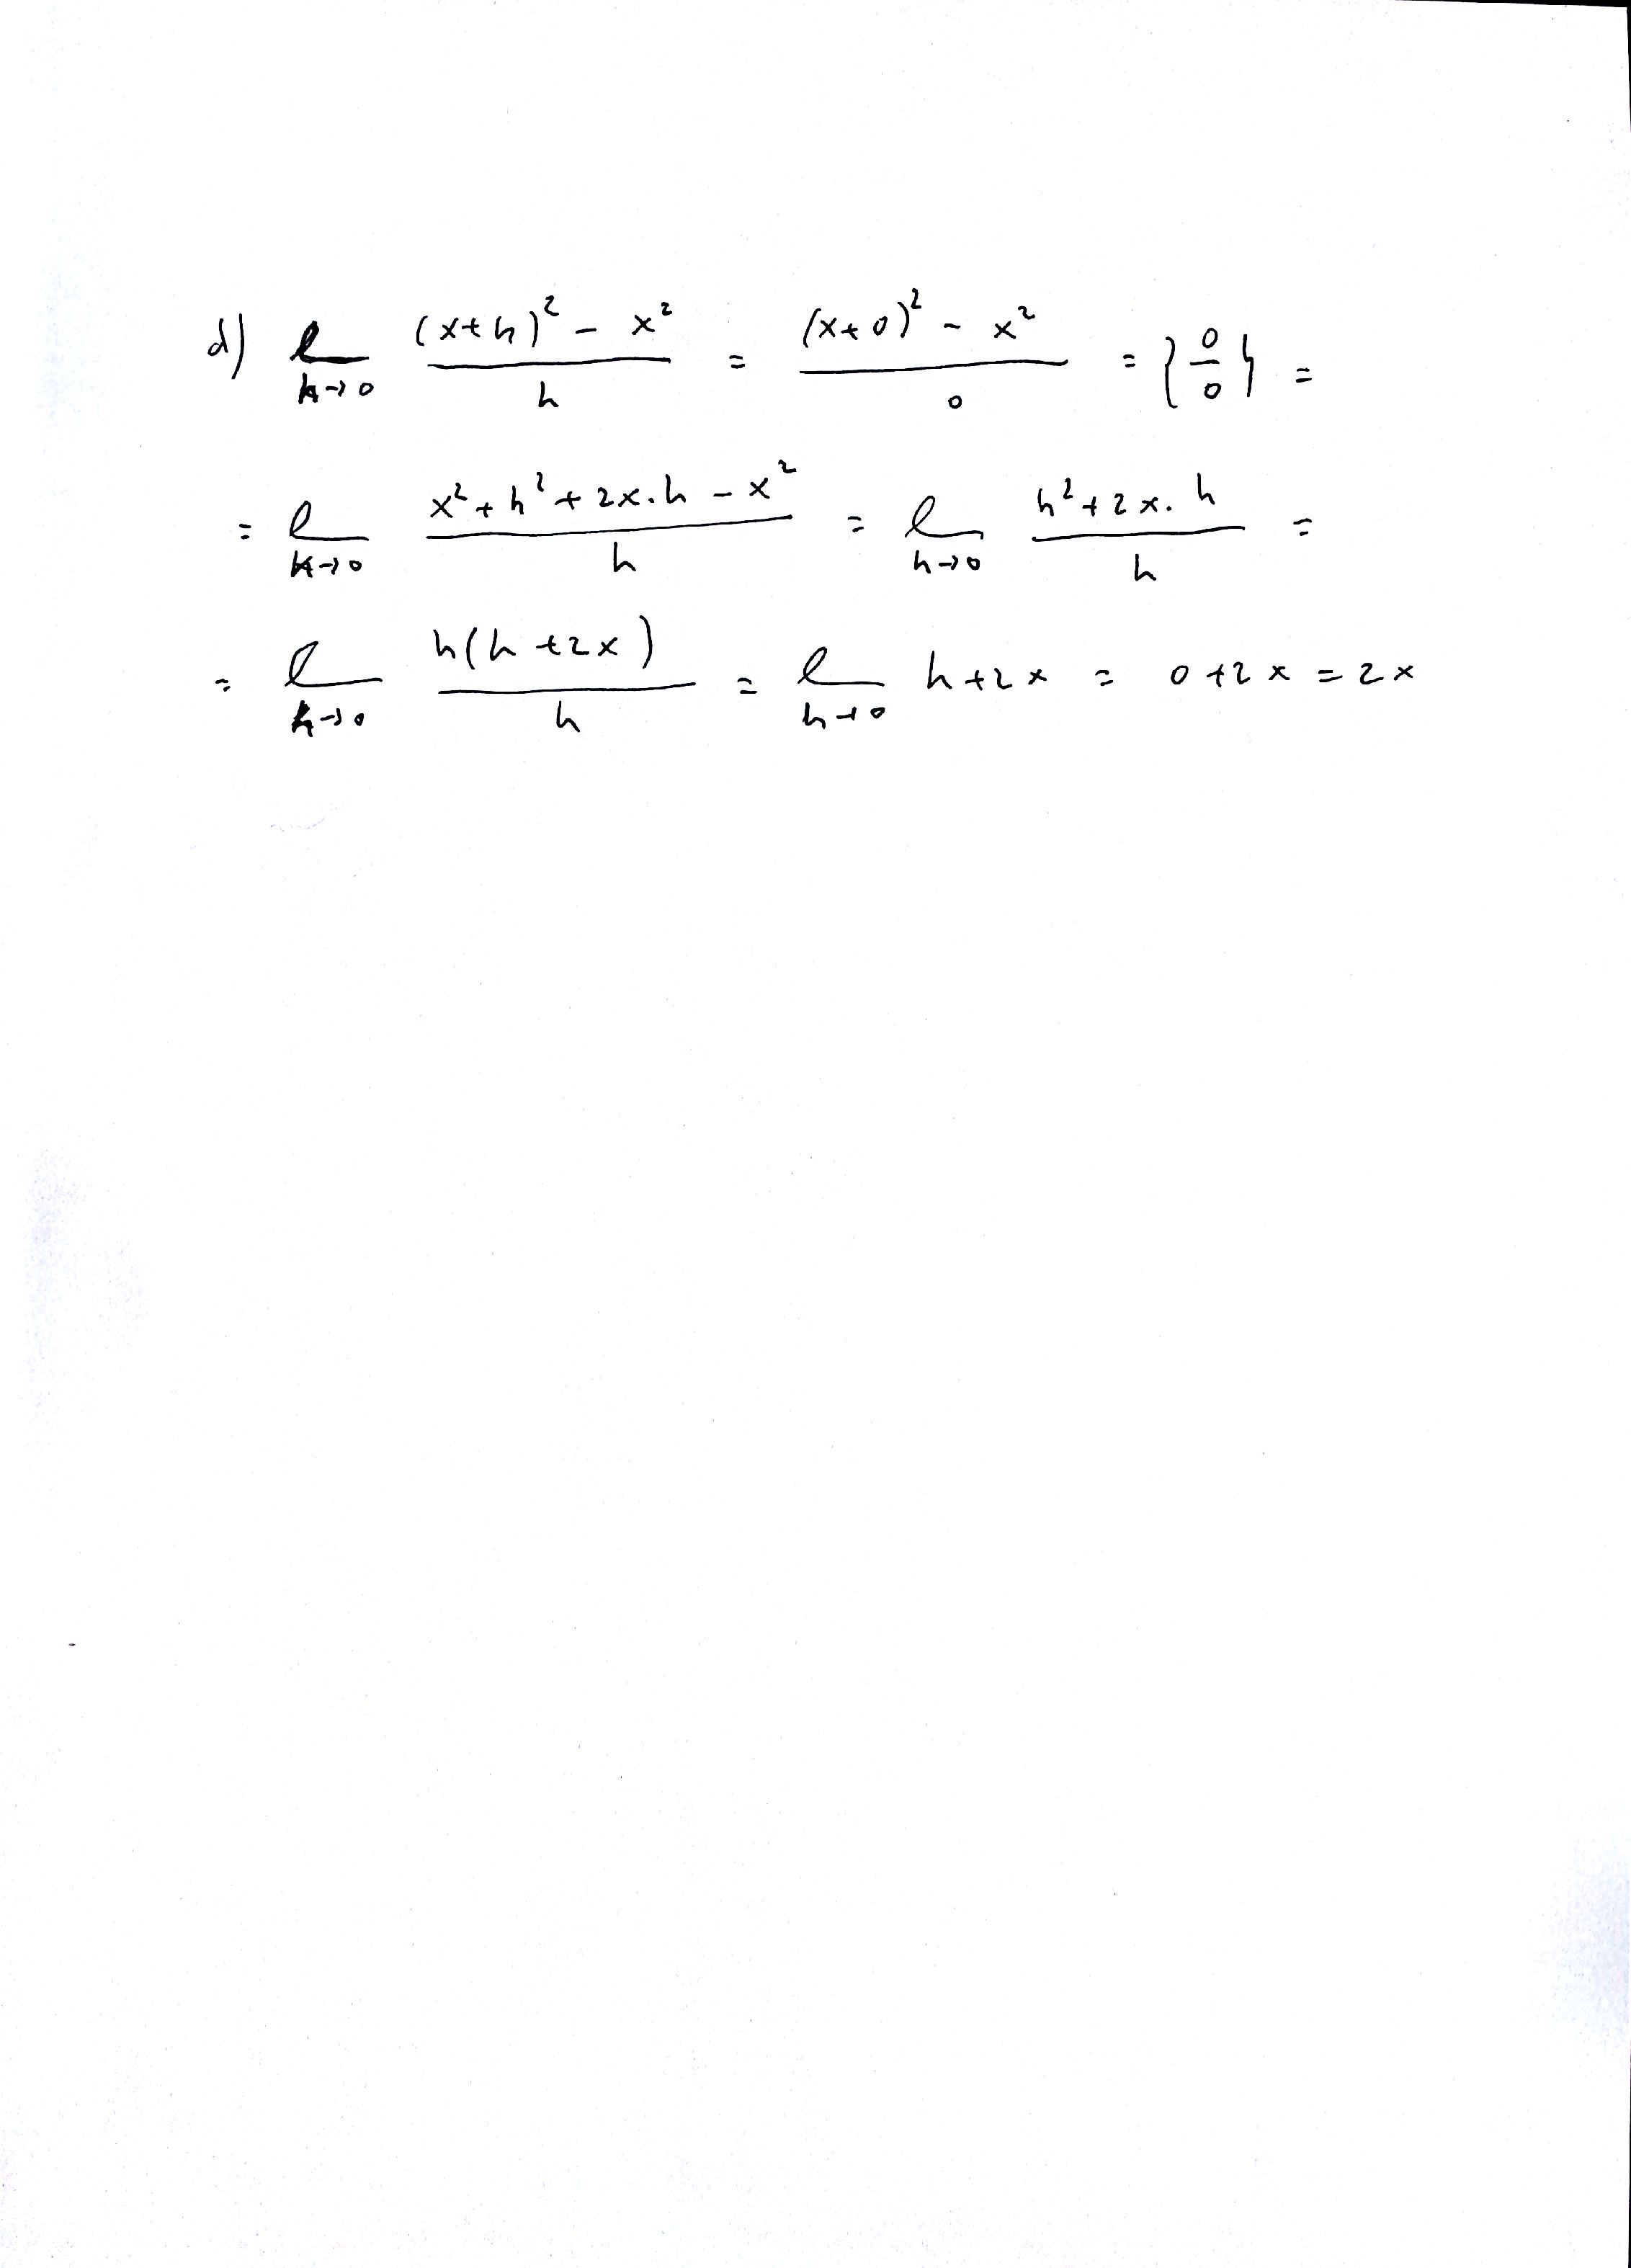 d) l_{h→0} \frac{(x+h)^2 - x^2}{h} = \frac{(x+0)^2 - x^2}{0} = {\frac{0}{0}} =
= l_{h→0} \frac{x^2 + h^2 + 2x.h - x^2}{h} = l_{h→0} \frac{h^2 + 2x.h}{h} =
= l_{h→0} \frac{h(h+2x)}{h} = l_{h→0} h+2x = 0+2x = 2x